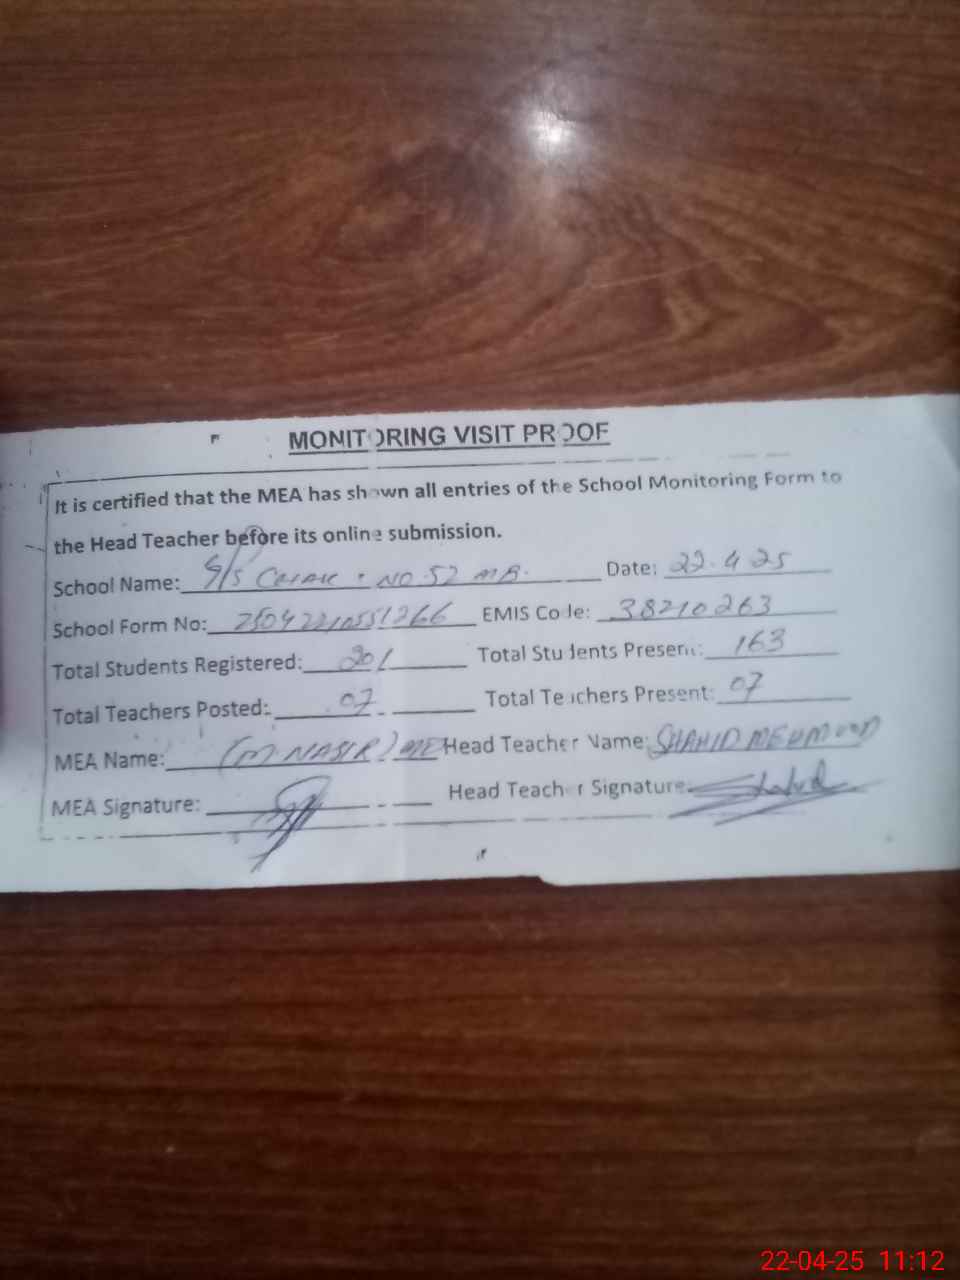 MONITORING VISIT PROOF
It is certified that the MEA has shown all entries of the School Monitoring Form to
the Head Teacher before its online submission.
School Name: G/S Chak . NO. 52 MB. Date: 22.4.25
School Form No: 25042210551266 EMIS Code: 38210263
Total Students Registered: 201 Total Students Present: 163
Total Teachers Posted: 07 Total Teachers Present: 07
MEA Name: (M NASIR) Head Teacher Name: SHAHID MEHMOOD
MEA Signature: Head Teacher Signature: Shahid
22-04-25 11:12